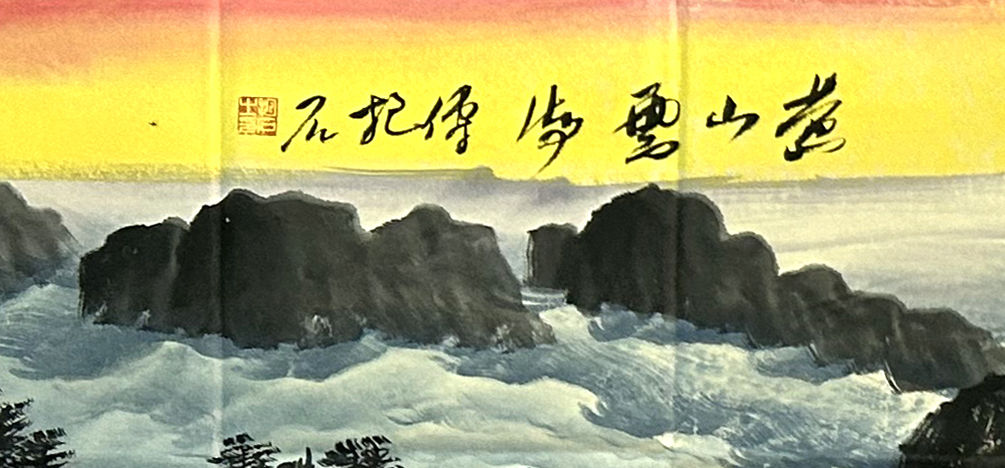 黄山雲海 傅抱石